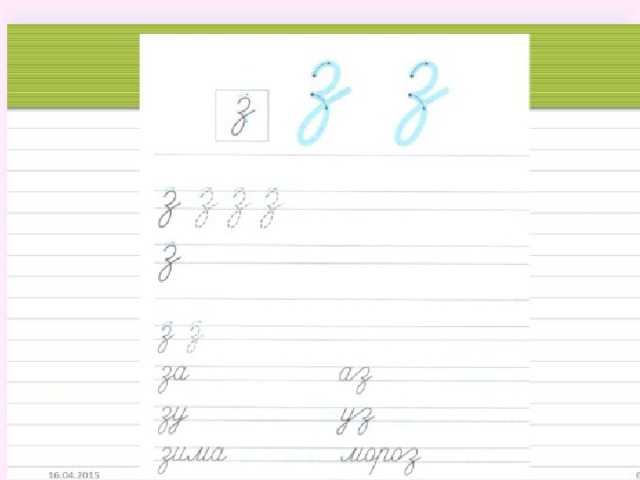 з з з
з з з з
з
з з
за аз
зу уз
зима мороз
16.04.2015 6